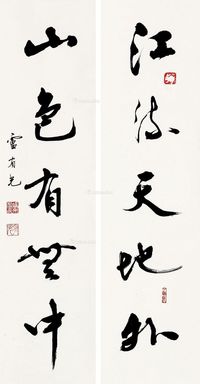 江流天地外
山色有無中
霍有光